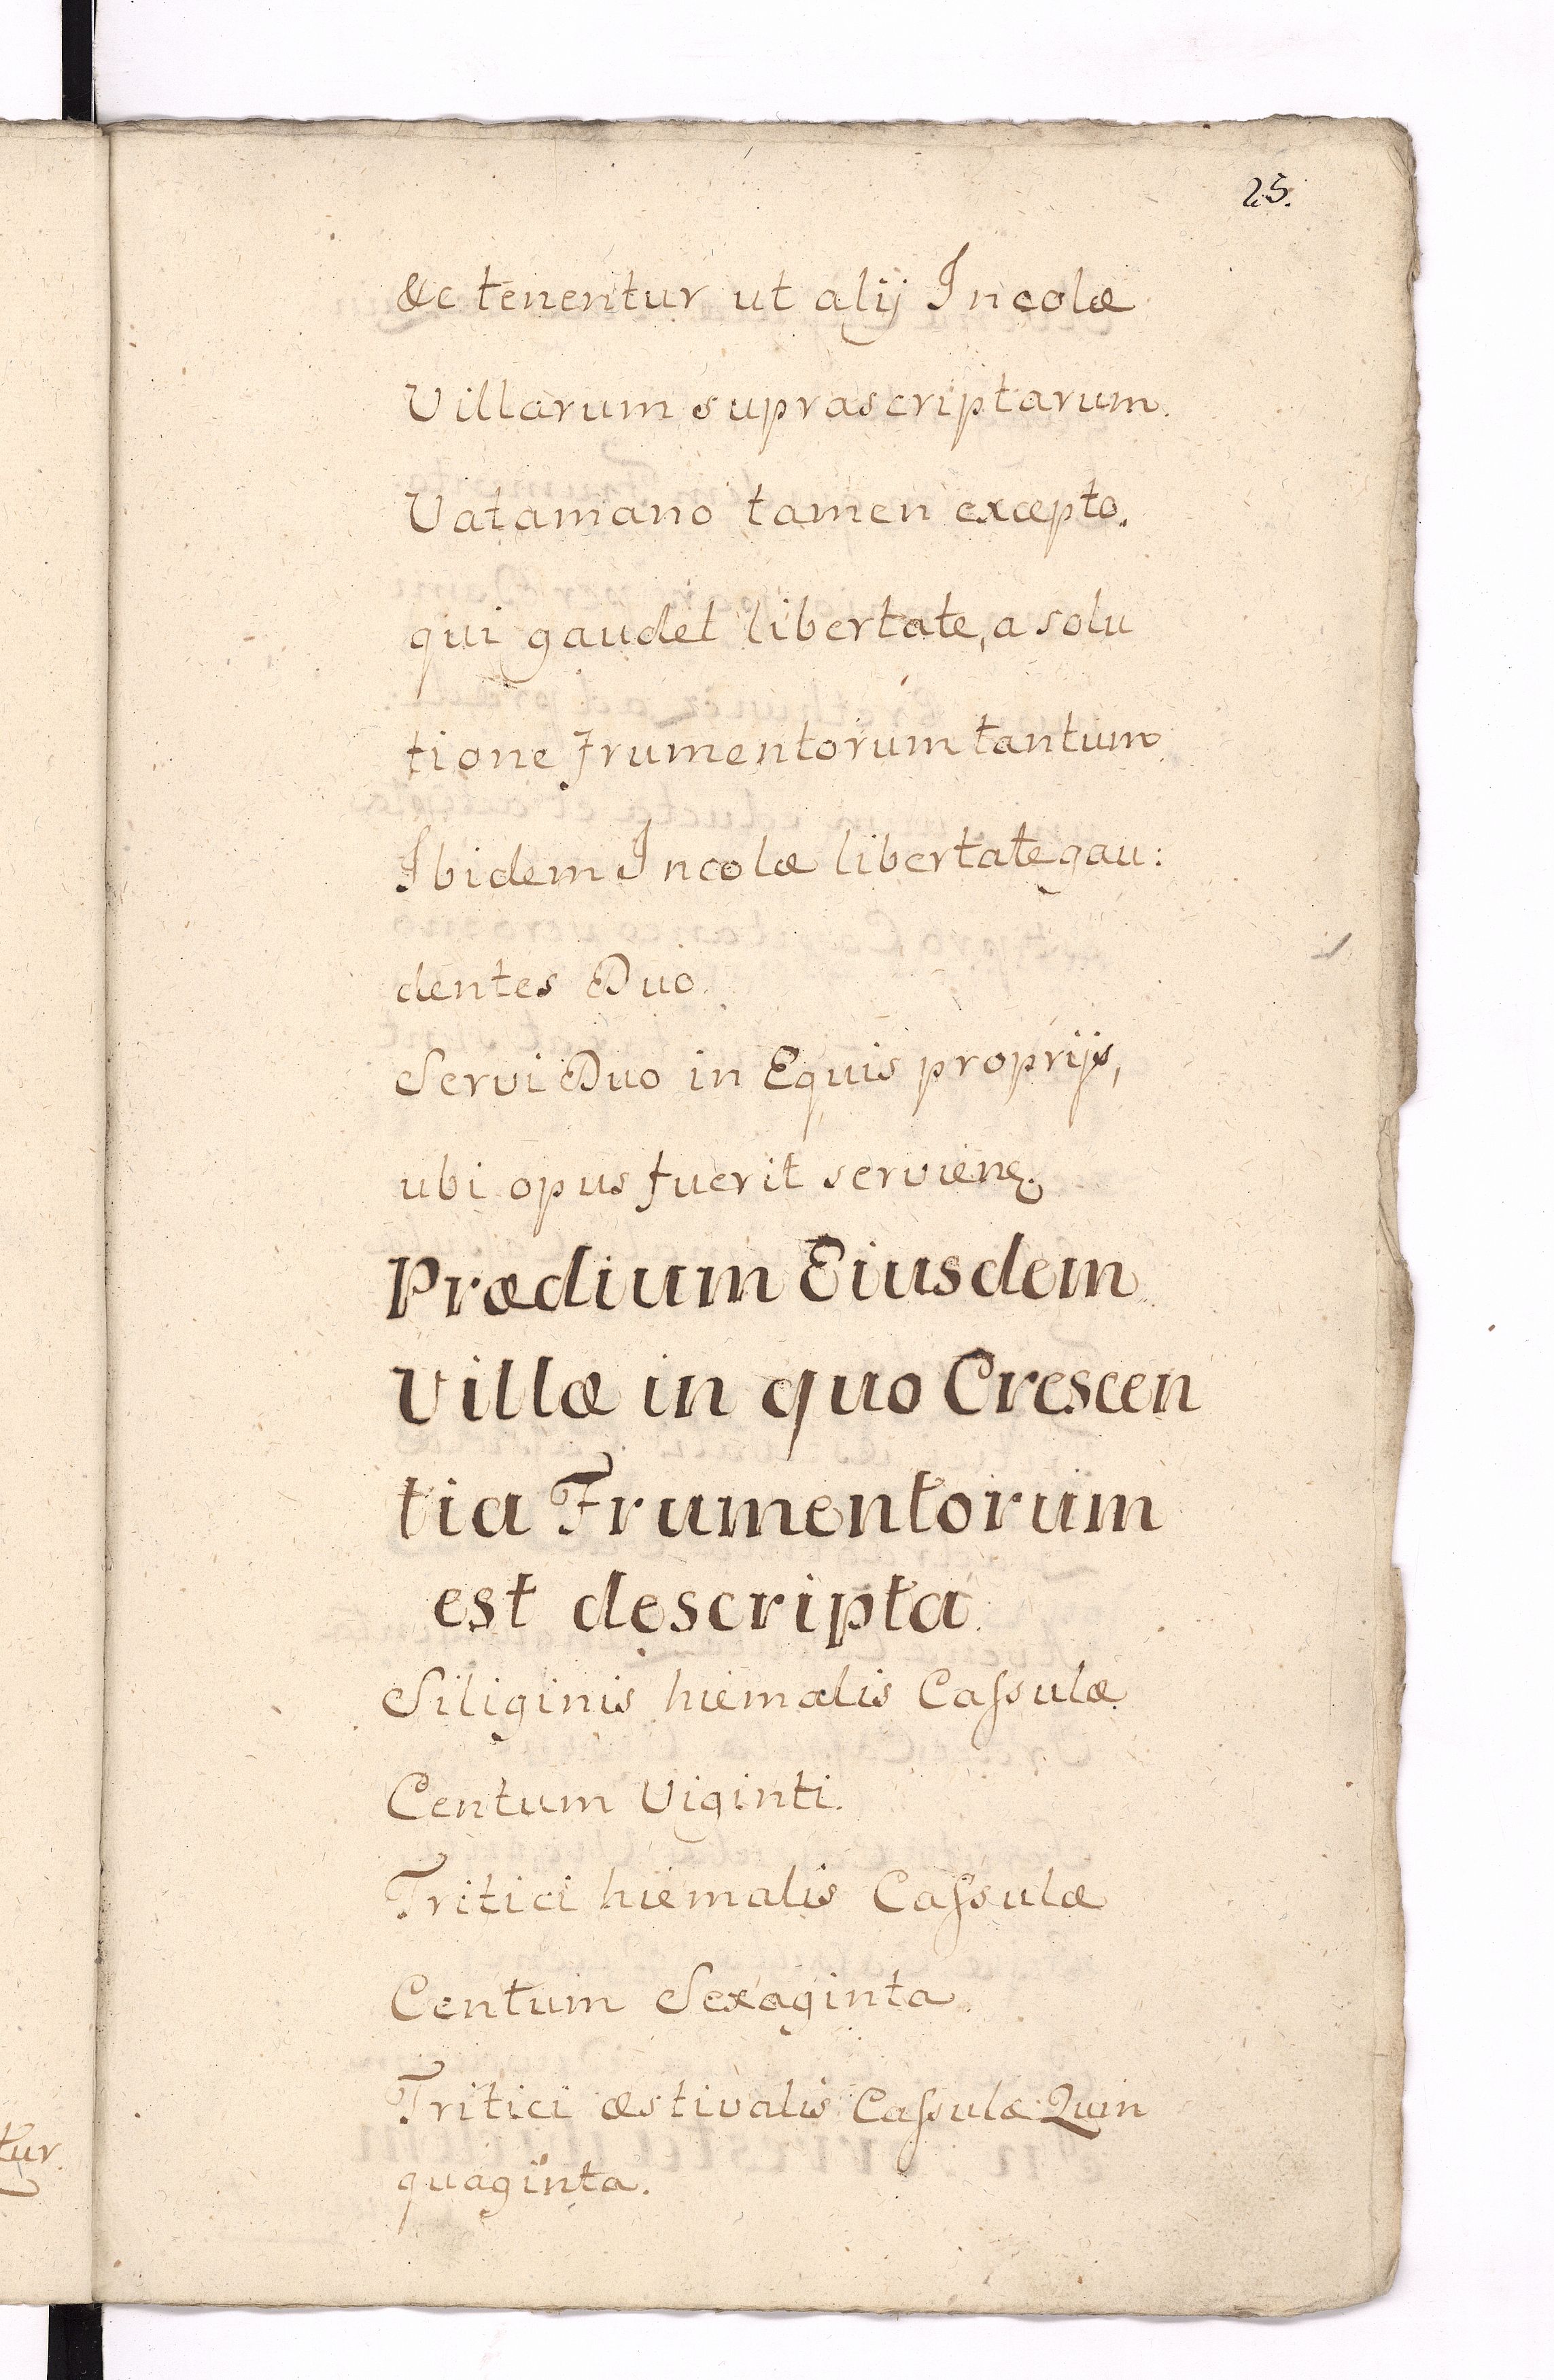 25.
&c tenentur ut alij Incolæ
Villarum suprascriptarum.
Vatamano tamen excepto.
qui gaudet libertate, a solu
tione frumentorum tantum
Ibidem Incolæ libertate gau:
dentes Duo.
Servi Duo in Equis proprijs,
ubi opus fuerit servien̨.
Prædium Eiusdem
Villæ in quo Crescen
tia Frumentorum
est descripta.
Siliginis hiemalis Caſsulæ
Centum Viginti.
Tritici hiemalis Caſsulæ
Centum Sexaginta.
Tritici æstivalis Caſsulæ Quin
quaginta.
tur.